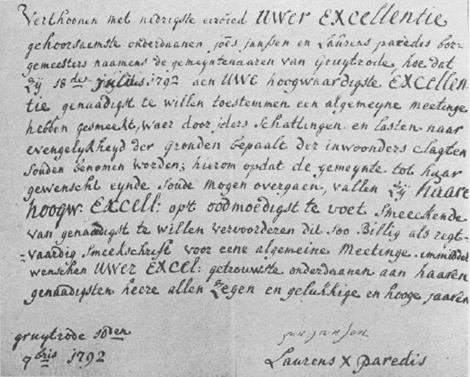 Verthoonen met nidrigste eerbied UWER EXCELLENTIE
gehoorsaemste onderdaanen, joês janssen en Laurens paredis bor-
gemeesters naamens de gemeyntenaaren van gruytrode, hoe dat
zij 18 des julius 1792 aen UWE hoogwaardigste EXCELLEN-
TIE genaadigst te willen toestemmen een algemeyne meetinge
hebben gesmeekt, waer door jders schattingen en lasten naar
evengelykheyd der gronden bepaalt der inwoonders clagten
souden benomen worden; hierom opdat de gemeynte tot haar
gewenscht eynde soude mogen overgaen, vallen zij Haare
HOOGW. EXCELL: opt oodmoedigst te voet smeeckende
van genaadigst te willen vervoorderen dit soo Billig als regt-
vaardig smeekschrift voor eene algemeine Meetinge. immiddels
wenschen UWER EXCEL: getrouwste onderdaanen aan haaren
genaadigsten heere allen zegen en gelukkige en hooge jaaren
gruytrode 10den
7bris 1792
jan jansen
Laurens X paredis